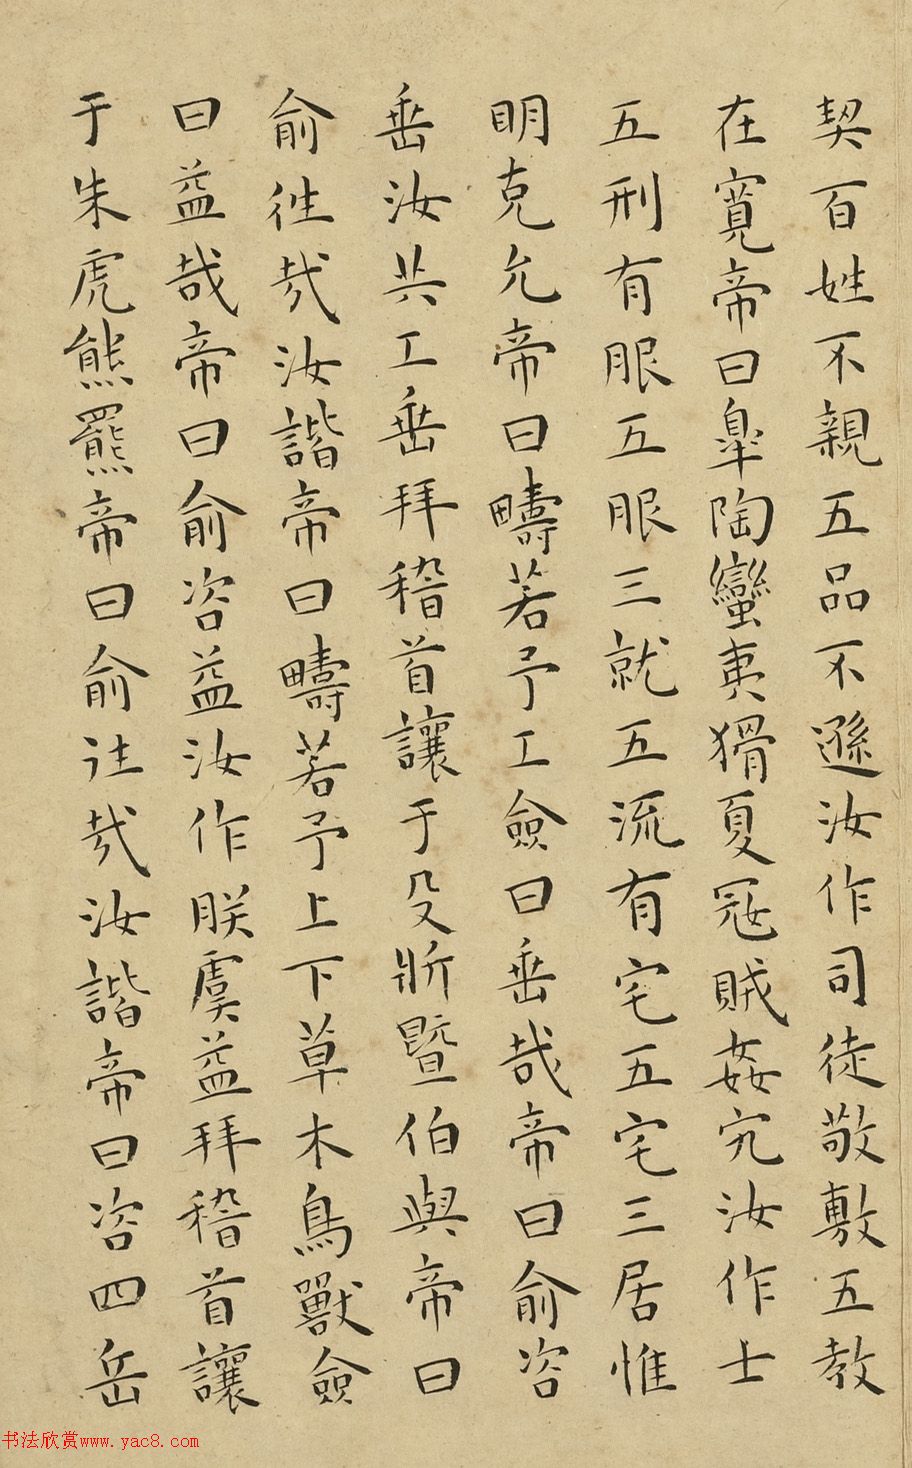 契百姓不親五品不遜汝作司徒敬敷五教
在寬帝曰臯陶蠻夷猾夏寇賊姦宄汝作士
五刑有服五服三就五流有宅五宅三居惟
明克允帝曰疇若予工僉曰垂哉帝曰俞咨
垂汝共工垂拜稽首讓于殳斨暨伯與帝曰
俞往哉汝諧帝曰疇若予上下草木鳥獸僉
曰益哉帝曰俞咨益汝作朕虞益拜稽首讓
于朱虎熊羆帝曰俞往哉汝諧帝曰咨四岳
书法欣赏www.yac8.com